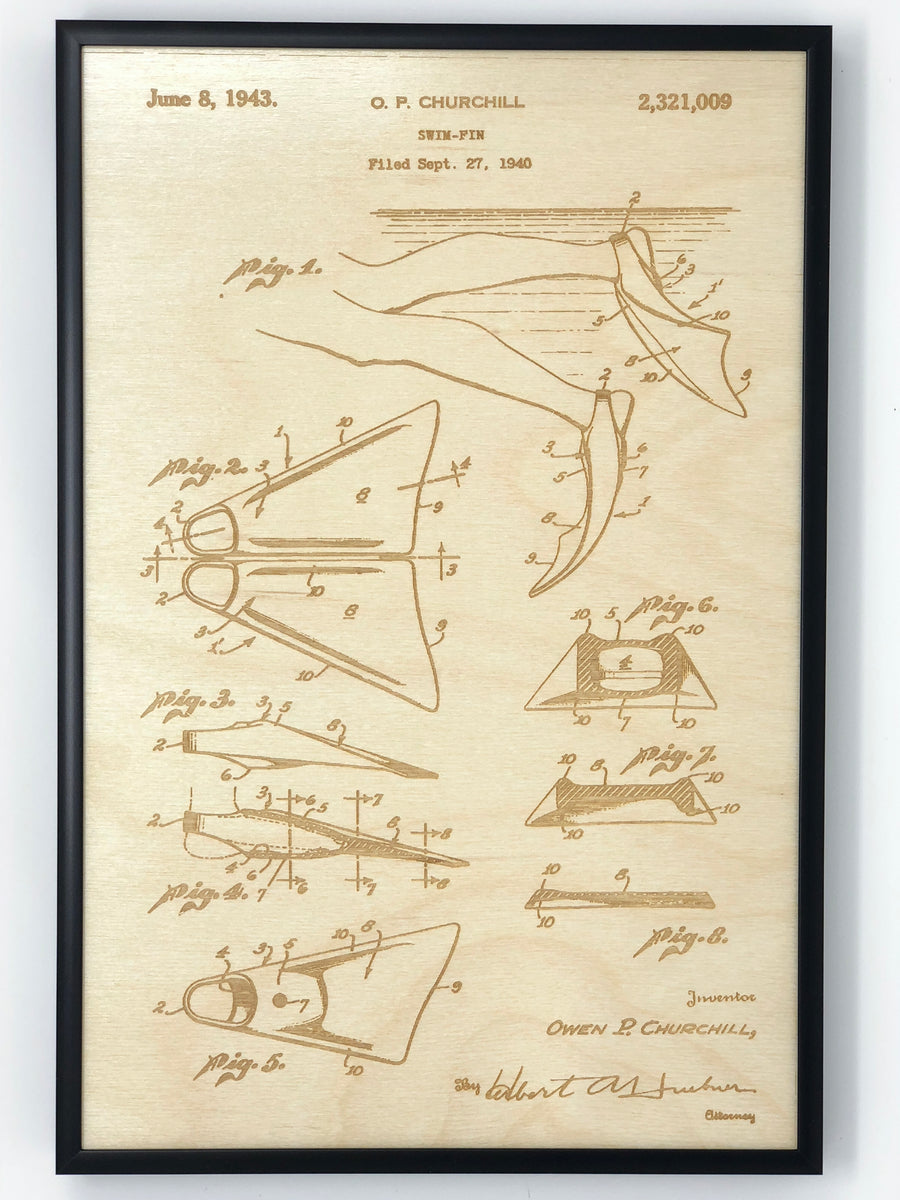 June 8, 1943.
O. P. CHURCHILL
2,321,009
SWIM-FIN
Filed Sept. 27, 1940
Fig. 1.
2
6
3
1'
5
10
8
10
9
2
3
5
6
7
1
8
9
Fig. 2.
1
10
3
4
2
8
9
4
3
3
2
10
8
3
1'
9
10
Fig. 6.
10
5
10
4
10
7
10
Fig. 3.
3
5
8
2
6
Fig. 7.
10
8
10
10
10
3
6
7
5
2
8
8
4
6
7
6
7
8
Fig. 4.
10
8
10
Fig. 8.
4
3
5
10
8
2
7
9
10
Fig. 5.
Inventor
OWEN P. CHURCHILL,
By
Attorney